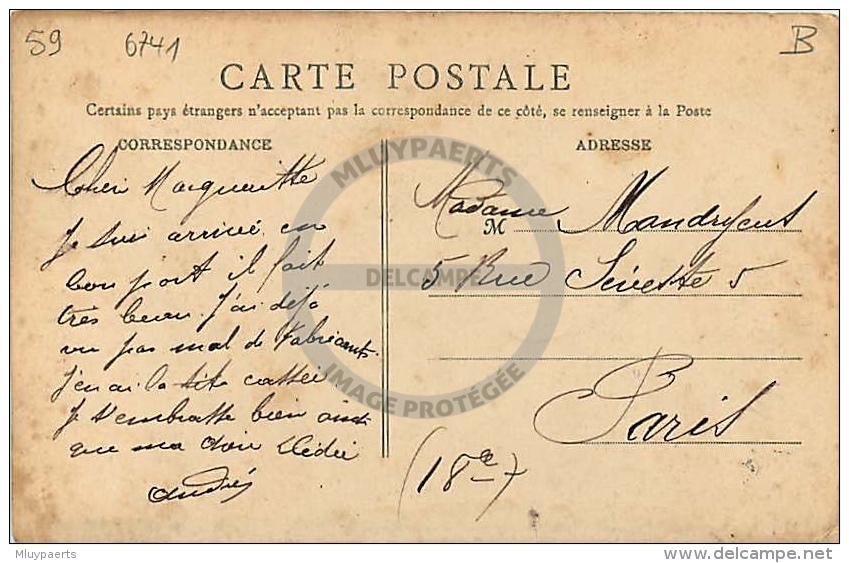 59 6741 B
CARTE POSTALE
Certains pays étrangers n'acceptant pas la correspondance de ce côté, se renseigner à la Poste
CORRESPONDANCE
Cheri Margueritte
Je suis arrivé en
bon port il fait
très beau. J'ai déjà
vu pas mal de fabricants.
J'en ai la tête cassée
Je t'embrasse bien ainsi
que ma chère Dédée
André
ADRESSE
Madame
M
5 Rue Séveste 5
Paris
(18e)
MLUYPAERTS
DELCAMPE
IMAGE PROTÉGÉE
Mluypaerts
delcampe.net